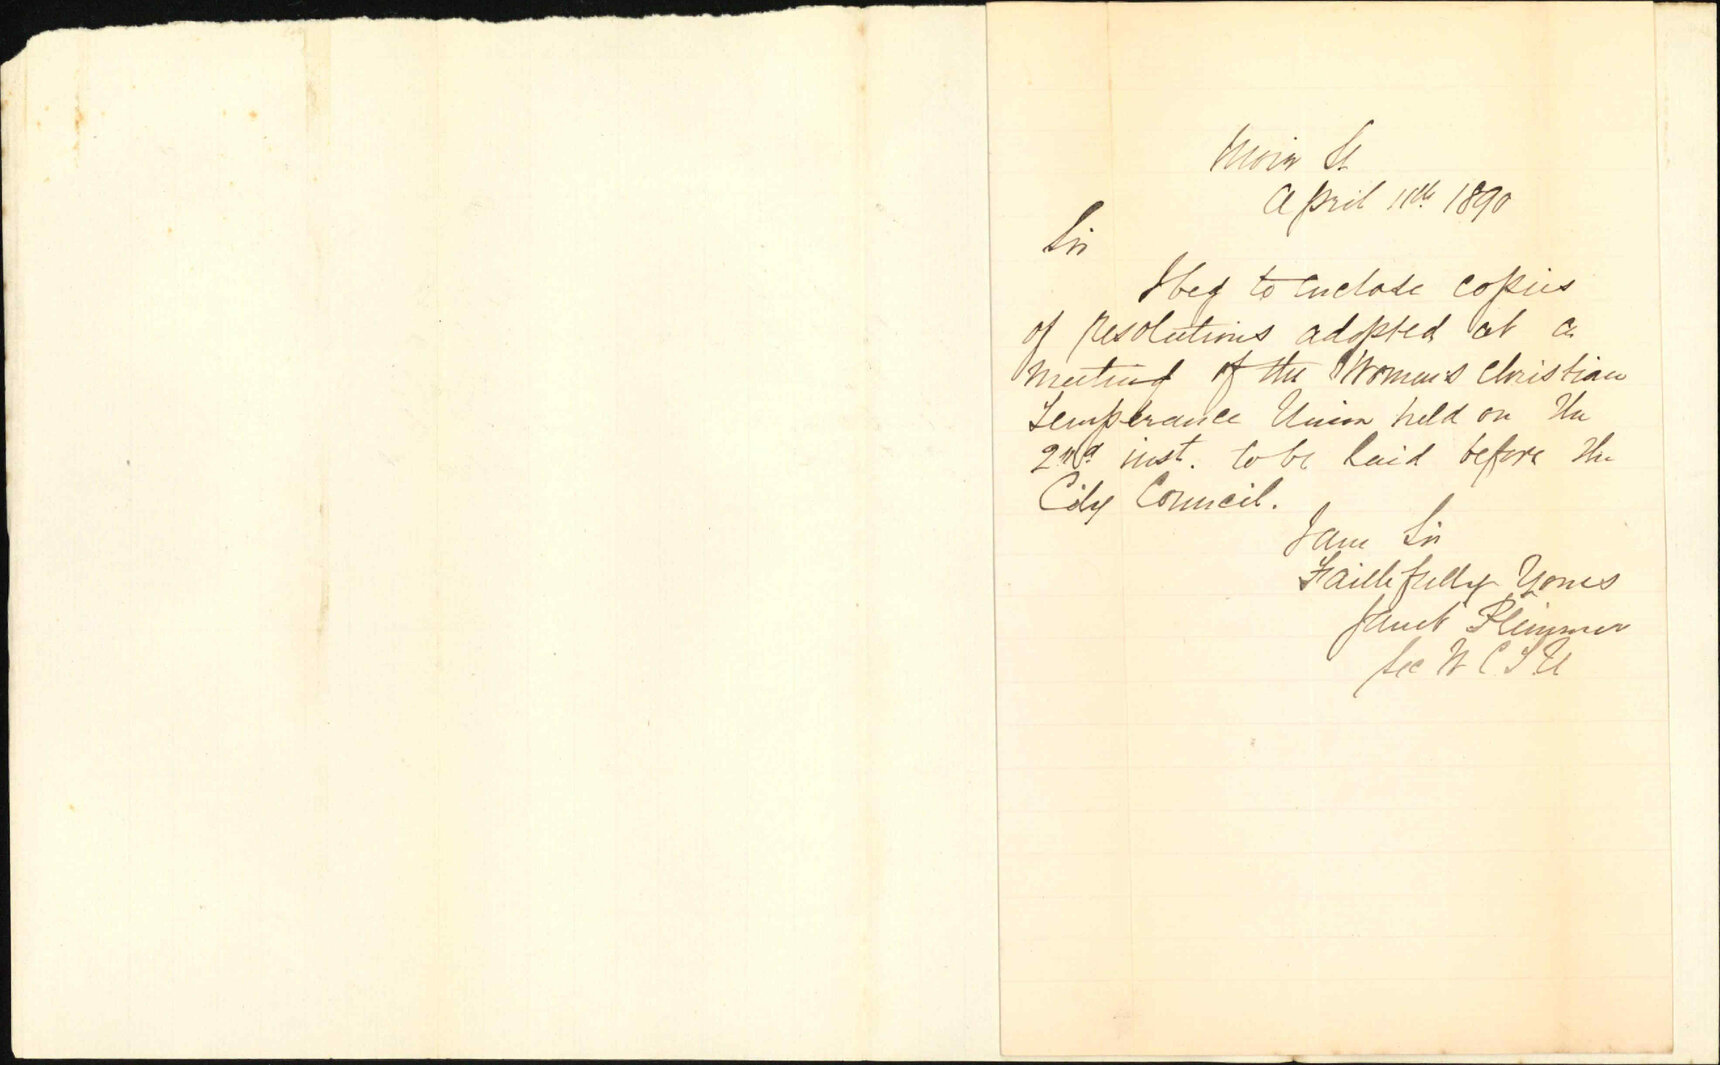 Moir St.
April 11th 1890
Sir
I beg to enclose copies
of resolutions adopted at a
meeting of the Women's Christian
Temperance Union held on the
2nd inst. to be laid before the
City Council.
I am Sir
Faithfully Yours
Janet Plimmer
Sec W C T U